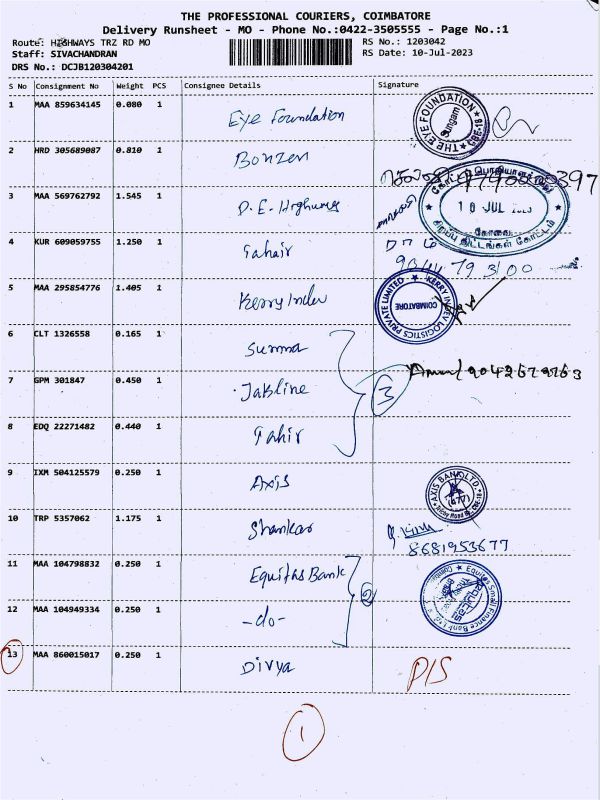 THE PROFESSIONAL COURIERS, COIMBATORE
Delivery Runsheet - MO - Phone No.:0422-3505555 - Page No.:1
Route: HIGHWAYS TRZ RD MO
RS No.: 1203042
Staff: SIVACHANDRAN
RS Date: 10-Jul-2023
DRS No.: DCJB120304201
S No Consignment No Weight PCS Consignee Details Signature
1 MAA 859634145 0.080 1 Eye Foundation
THE EYE FOUNDATION Sungam CBE-18
2 HRD 305689087 0.810 1 Bonzen
3 MAA 569762792 1.545 1 D.E. Highways
10 JUL
சிறப்பு திட்டங்கள் கோட்டம்
கோவை
4 KUR 609059755 1.250 1 Fahair
ராம்
5 MAA 295854776 1.405 1 Kerry Indev
KERRY INDEV LOGISTICS PRIVATE LIMITED COIMBATORE
6 CLT 1326558 0.165 1 Summa
7 GPM 301847 0.450 1 Jakline
3
8 EDQ 22271482 0.440 1 Fahir
9 IXM 504125579 0.250 1 Axis
AXIS BANK LTD.
(477)
10 TRP 5357062 1.175 1 Shankar
8681953677
11 MAA 104798832 0.250 1 Equitas Bank
2
Equitas Small Finance Bank Ltd.
12 MAA 104949334 0.250 1 -do-
13 MAA 860015017 0.250 1 Divya
D/S
1